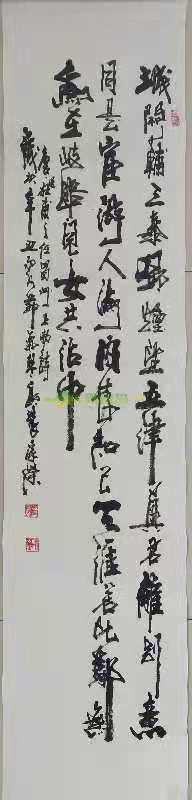 城闕輔三秦風煙望五津與君離別意
同是宦遊人海內存知己天涯若比鄰無
為在歧路兒女共沾巾
杜少府之任蜀州王勃詩
歲次年